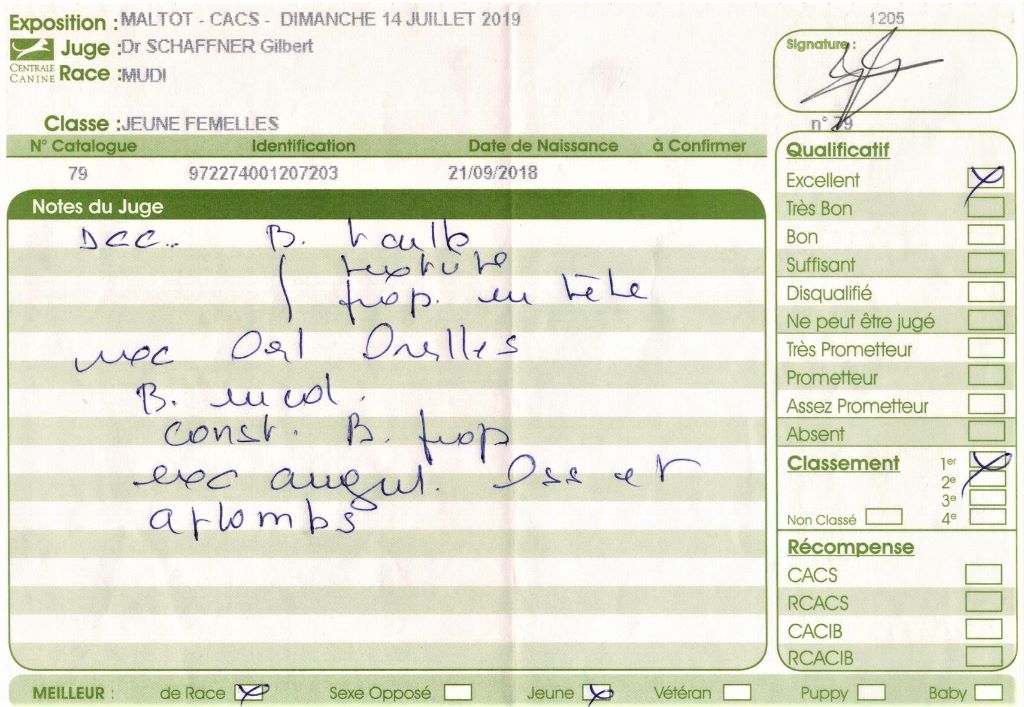 Exposition : MALTOT - CACS - DIMANCHE 14 JUILLET 2019
1205
Juge : Dr SCHAFFNER Gilbert
CENTRALE CANINE
Race : MUDI
Signature :
Classe : JEUNE FEMELLES
n° 79
N° Catalogue Identification Date de Naissance à Confirmer
79 972274001207203 21/09/2018
Notes du Juge
B. taille
texture
prop. en tête
exc Oeil Oreilles
B. encol.
const. B. prop
exc angul. Oss et
aplombs
Qualificatif
Excellent
Très Bon
Bon
Suffisant
Disqualifié
Ne peut être jugé
Très Prometteur
Prometteur
Assez Prometteur
Absent
Classement 1er
2e
3e
Non Classé 4e
Récompense
CACS
RCACS
CACIB
RCACIB
MEILLEUR : de Race Sexe Opposé Jeune Vétéran Puppy Baby